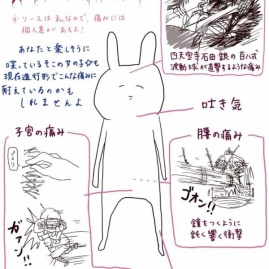 ※ソースは私なので、痛みには
個人差があるよ!
あなたと楽しそうに
喋っているそこの女の子も
現在進行形でこんな痛みに
耐えているのかも
しれませんよ
四天宝寺石田銀の百八式
波動球が直撃するような痛み
吐き気
子宮の痛み
メエリ
ガァン!!
腰の痛み
ゴオン!!
鐘をつくように
鈍く響く衝撃